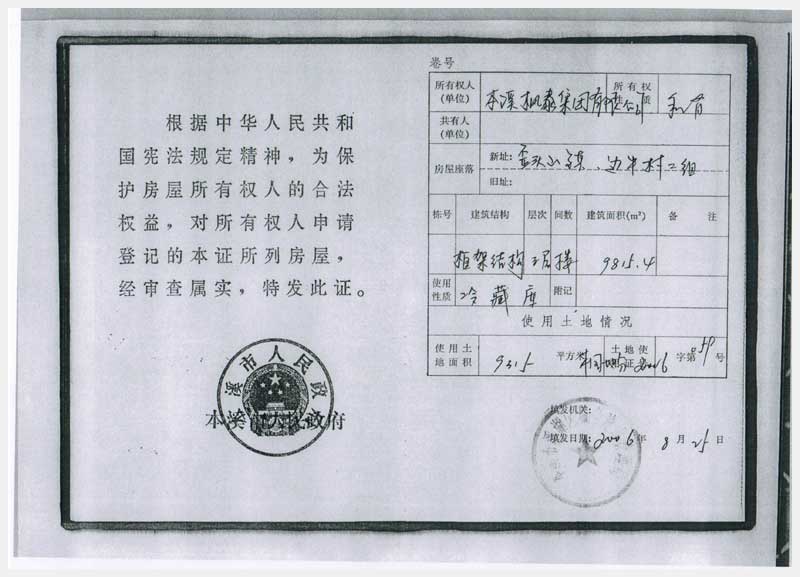 根据中华人民共和
国宪法规定精神，为保
护房屋所有权人的合法
权益，对所有权人申请
登记的本证所列房屋，
经审查属实，特发此证。
本溪市人民政府
本溪市人民政府
卷号
所有权人(单位) 本溪 泰集团有限公司 所有权性质 私有
共有人(单位)
房屋座落 新址：歪头山镇、边牛村二组
旧址：
栋号 建筑结构 层次 间数 建筑面积(m²) 备注
框架结构 9815.4
使用性质 冷藏库 附记
使用土地情况
使用土地面积 9315 平方米 土地使 证 字第 59 号
填发机关：
填发日期：2006年8月25日